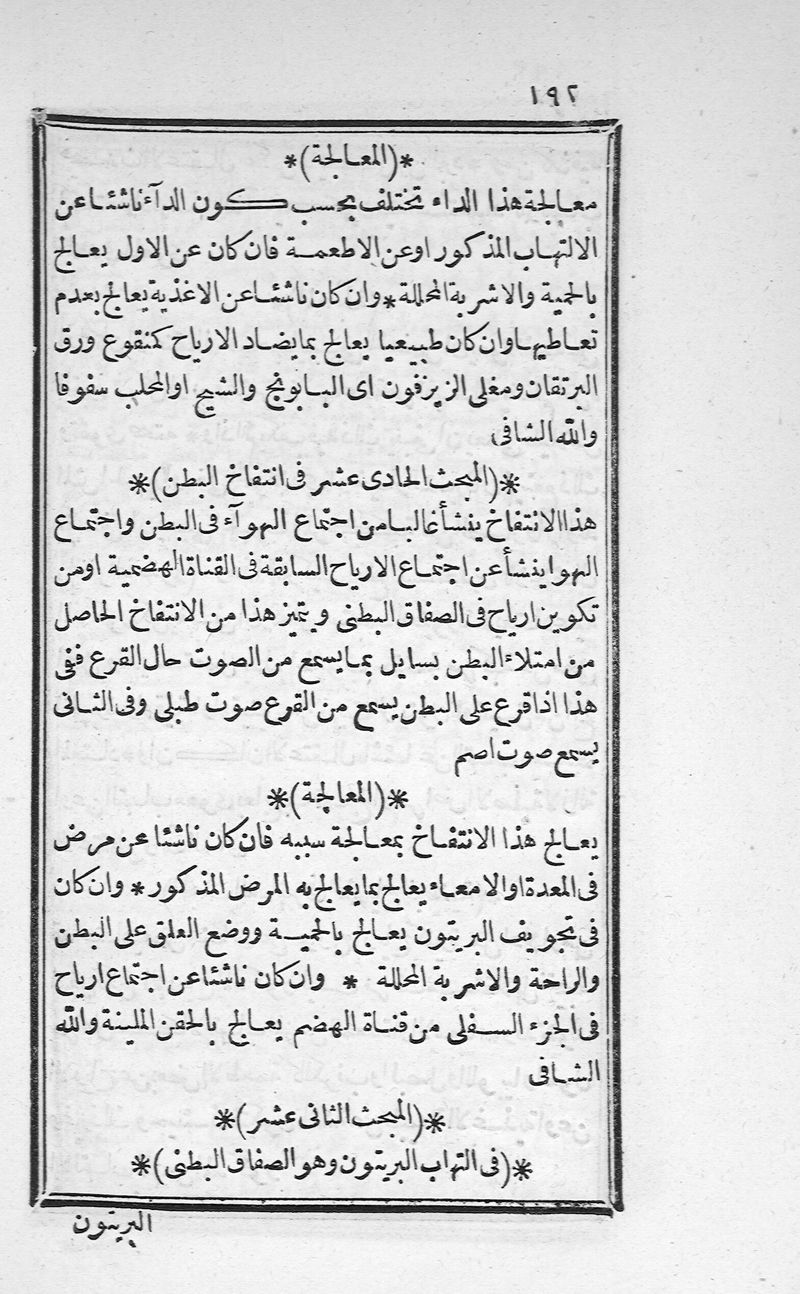 ١٩٢
*(المعالجة)*
معالجة هذا الداء تختلف بحسب كون الدآء ناشئا عن
الالتهاب المذكور او عن الاطعمة فان كان عن الاول يعالج
بالحمية والاشربة المحللة * وان كان ناشئا عن الاغذية يعالج بعدم
تعاطيها وان كان طبيعيا يعالج بما يضاد الارياح كمنقوع ورق
البرتقان ومغلى الزيزفون اى البابونج والشيح او المحلب سفوفا
والله الشافى
*(المبحث الحادى عشر فى انتفاخ البطن)*
هذا الانتفاخ ينشأ غالبا من اجتماع الهوآء فى البطن واجتماع
الهوا ينشأ عن اجتماع الارياح السابقة فى القناة الهضمية او من
تكوين ارياح فى الصفاق البطنى ويتميز هذا من الانتفاخ الحاصل
من امتلاء البطن بسايل بما يسمع من الصوت حال القرع ففى
هذا اذا قرع على البطن يسمع من القرع صوت طبلى وفى الثانى
يسمع صوت اصم
*(المعالجة)*
يعالج هذا الانتفاخ بمعالجة سببه فان كان ناشئا عن مرض
فى المعدة او الامعاء يعالج بما يعالج به المرض المذكور * وان كان
فى تجويف البريتون يعالج بالحمية ووضع العلق على البطن
والراحة والاشربة المحللة * وان كان ناشئا عن اجتماع ارياح
فى الجزء السفلى من قناة الهضم يعالج بالحقن الملينة والله
الشافى
*(المبحث الثانى عشر)*
*(فى التهاب البريتون وهو الصفاق البطنى)*
البريتون